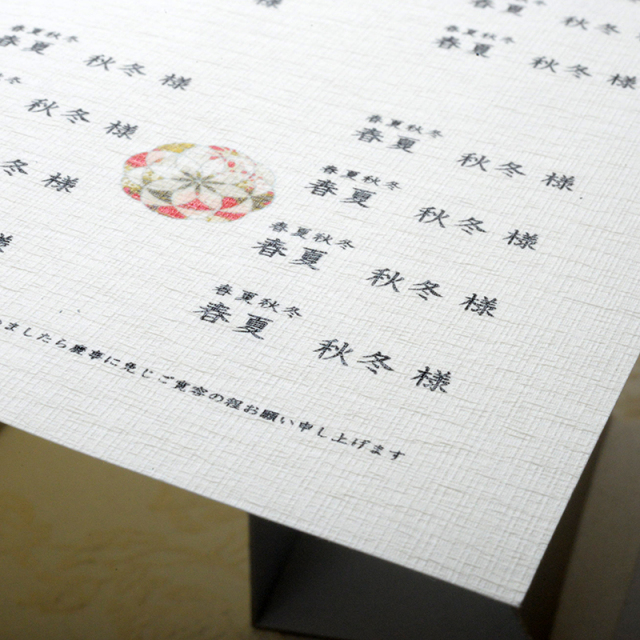 春夏秋冬
春夏 秋冬 様
秋冬 様
秋冬 様
春夏秋冬
春夏 秋冬 様
春夏秋冬
春夏 秋冬 様
春夏秋冬
春夏 秋冬 様
春夏秋冬
春夏 秋冬 様
春夏秋冬
春夏 秋冬 様
ましたら慶事に免じご寛容の程お願い申し上げます